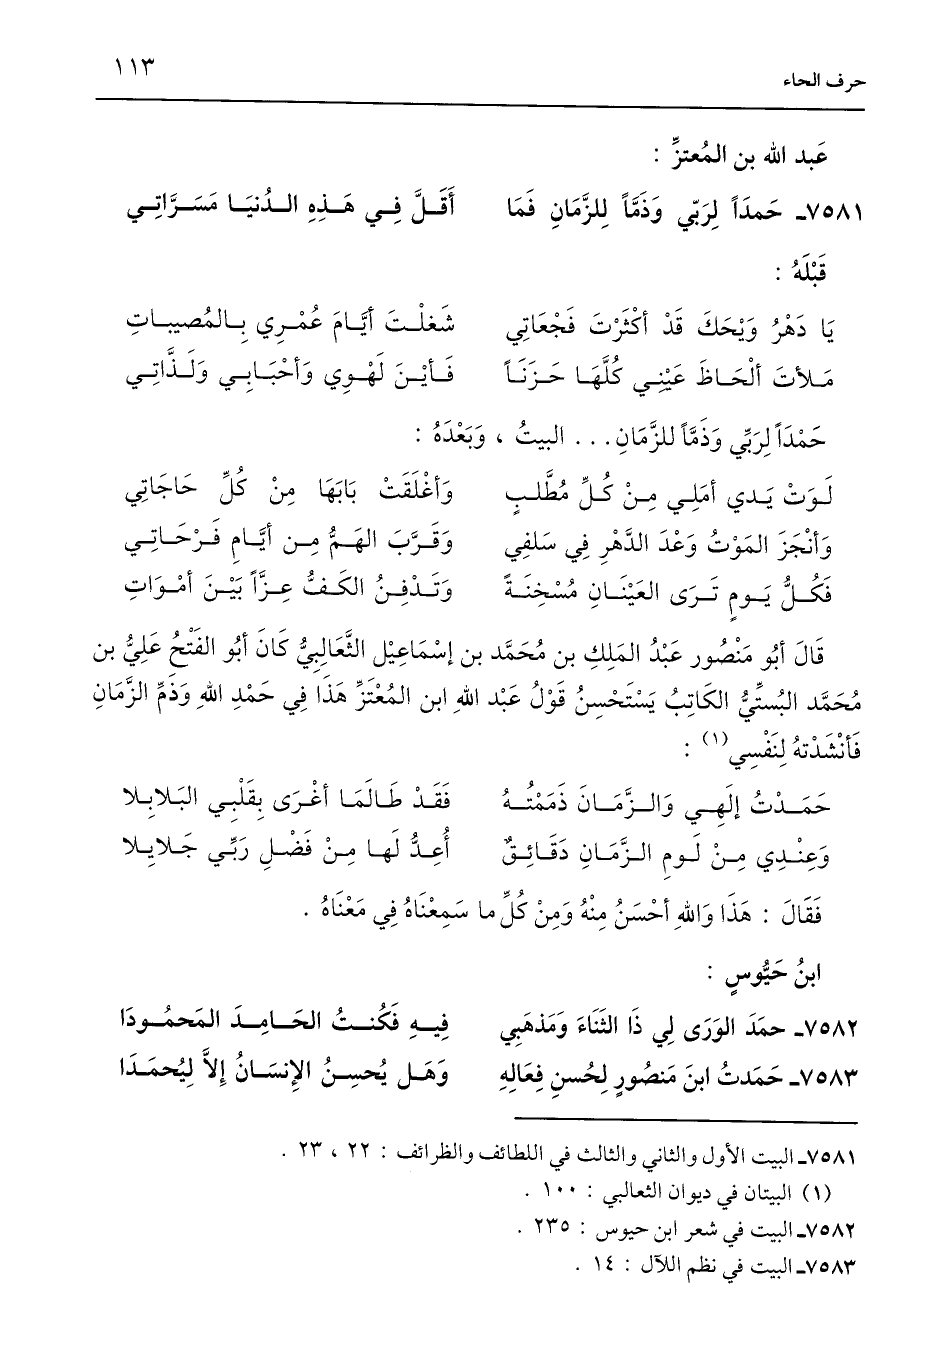 حرف الحاء ١١٣
عَبد الله بن المُعتزِّ :
٧٥٨١ـ حَمدَاً لِرَبّي وَذَمَّاً لِلزَّمَانِ فَمَا أَقَلَّ فِي هَذِهِ الدُنيَا مَسَرَّاتِي
قَبْلَهُ :
يَا دَهْرُ وَيْحَكَ قَدْ أكْثَرْتَ فَجْعَاتِي شَغلْتَ أيَّامَ عُمْرِي بِالمُصيبَاتِ
مَلأتَ ألْحَاظَ عَيْنِي كُلَّهَا حَزنَاً فَأيْنَ لَهْوِي وَأحْبَابِي وَلَذَّاتِي
حَمْدَاً لِرَبِّي وَذَمَّاً للزَّمَانِ... البيتُ ، وَبَعْدَهُ :
لَوَتْ يَدي أمَلِي مِنْ كُلِّ مُطَّلبٍ وَأغْلَقَتْ بَابَهَا مِنْ كُلِّ حَاجَاتِي
وَأنْجَزَ المَوْتُ وَعْدَ الدَّهْرِ فِي سَلفِي وَقَرَّبَ الهَمُّ مِن أيَّامِ فَرْحَاتِي
فَكُلُّ يَومٍ تَرَى العَيْنَانِ مُسْخِنَةً وَتَدْفِنُ الكَفُّ عِزَّاً بَيْنَ أمْوَاتِ
قَالَ أبُو مَنْصُور عَبْدُ المَلِكِ بن مُحَمَّد بن إسْمَاعِيْل الثَّعَالِبِيُّ كَانَ أبُو الفَتْحُ عَلِيُّ بن
مُحَمَّد البُستِيُّ الكَاتِبُ يَسْتَحْسِنُ قَوْلُ عَبْد اللهِ ابن المُعْتَزِّ هَذَا فِي حَمْدِ اللهِ وَذَمِّ الزَّمَانِ
فَأنْشَدْتهُ لِنَفْسِي(١) :
حَمَدْتُ إلَهِي وَالزَّمَانَ ذَمَمْتُهُ فَقَدْ طَالَمَا أغْرَى بِقَلْبِي البَلابِلا
وَعِنْدِي مِنْ لَومِ الزَّمَانِ دَقَائِقٌ أُعِدُّ لَهَا مِنْ فَضْلِ رَبِّي جَلايِلا
فَقَالَ : هَذَا وَاللهِ أحْسَنُ مِنْهُ وَمِنْ كُلِّ ما سَمِعْنَاهُ فِي مَعْنَاهُ .
ابنُ حَيُّوسٍ :
٧٥٨٢ـ حمَدَ الوَرَى لِي ذَا الثَنَاءَ وَمَذهَبِي فِيهِ فَكُنتُ الحَامِدَ المَحمُودَا
٧٥٨٣ـ حَمَدتُ ابنَ مَنصُورٍ لِحُسنِ فِعَالِهِ وَهَل يُحسِنُ الإِنسَانُ إِلاَّ لِيُحمَدَا
٧٥٨١ـ البيت الأول والثاني والثالث في اللطائف والظرائف : ٢٢ ، ٢٣ .
(١) البيتان في ديوان الثعالبي : ١٠٠ .
٧٥٨٢ـ البيت في شعر ابن حيوس : ٢٣٥ .
٧٥٨٣ـ البيت في نظم اللآل : ١٤ .